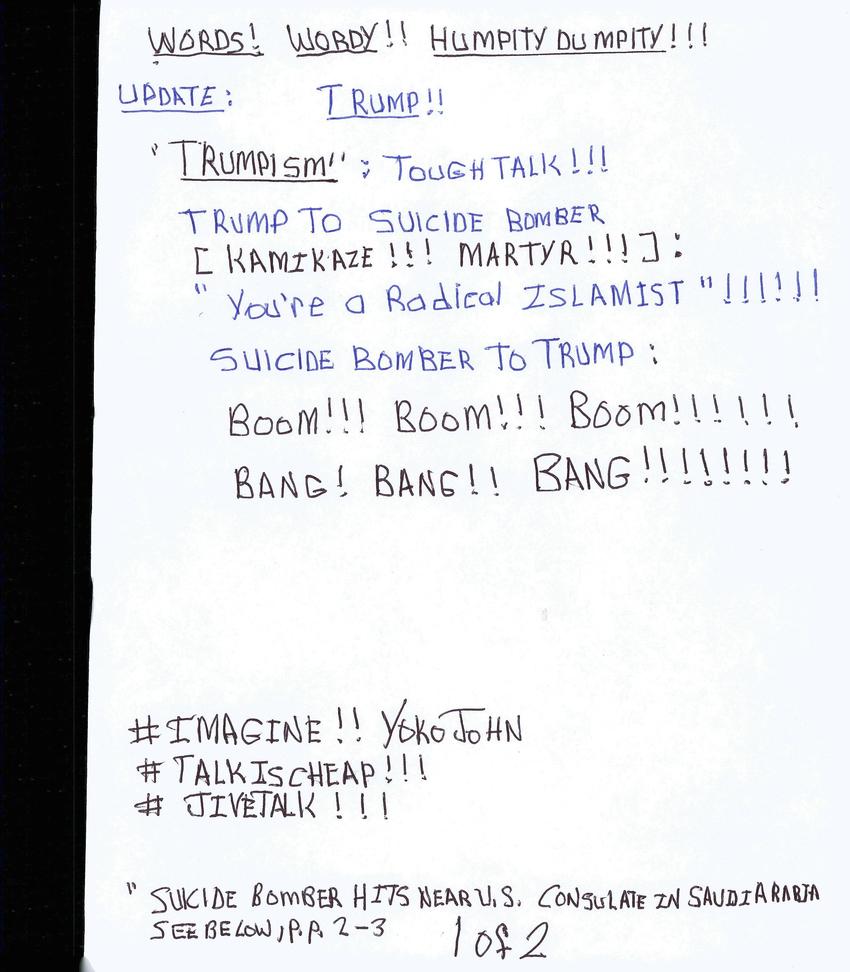 WORDS! WORDY!! HUMPITY DUMPITY!!!
UPDATE: TRUMP!!
"TRUMPISM": TOUGH TALK!!!
TRUMP TO SUICIDE BOMBER
[KAMIKAZE!!! MARTYR!!!]:
"You're a Radical ISLAMIST"!!!!!!
SUICIDE BOMBER TO TRUMP:
BOOM!!! BOOM!!! BOOM!!!!!!
BANG! BANG!! BANG!!!!!!!!
#IMAGINE!! YOKOJOHN
#TALKISCHEAP!!!
# JIVETALK!!!
" SUICIDE BOMBER HITS NEAR U.S. CONSULATE IN SAUDI ARABIA
SEE BELOW, P.P. 2-3
1 of 2